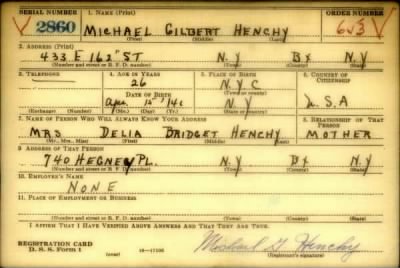 SERIAL NUMBER 1. NAME (Print) ORDER NUMBER
2860 MICHAEL GILBERT HENCHY
(First) (Middle) (Last)
2. ADDRESS (Print)
433 E 162" ST N.Y Bx N.Y
(Number and street or R. F. D. number) (Town) (County) (State)
3. TELEPHONE 4. AGE IN YEARS 5. PLACE OF BIRTH 6. COUNTRY OF CITIZENSHIP
26 N.Y.C
DATE OF BIRTH (Town or county)
N.Y U.S.A
(Exchange) (Number) (Mo.) (Day) (Yr.) (State or country)
7. NAME OF PERSON WHO WILL ALWAYS KNOW YOUR ADDRESS 8. RELATIONSHIP OF THAT PERSON
MRS DELIA BRIDGET HENCHY MOTHER
(Mr., Mrs., Miss) (First) (Middle) (Last)
9. ADDRESS OF THAT PERSON
740 HEGNEY PL. N.Y Bx N.Y
(Number and street or R. F. D. number) (Town) (County) (State)
10. EMPLOYER'S NAME
NONE
11. PLACE OF EMPLOYMENT OR BUSINESS
(Number and street or R. F. D. number) (Town) (County) (State)
I AFFIRM THAT I HAVE VERIFIED ABOVE ANSWERS AND THAT THEY ARE TRUE.
REGISTRATION CARD
D. S. S. Form 1 (over) Michael G. Henchy
(Registrant's signature)